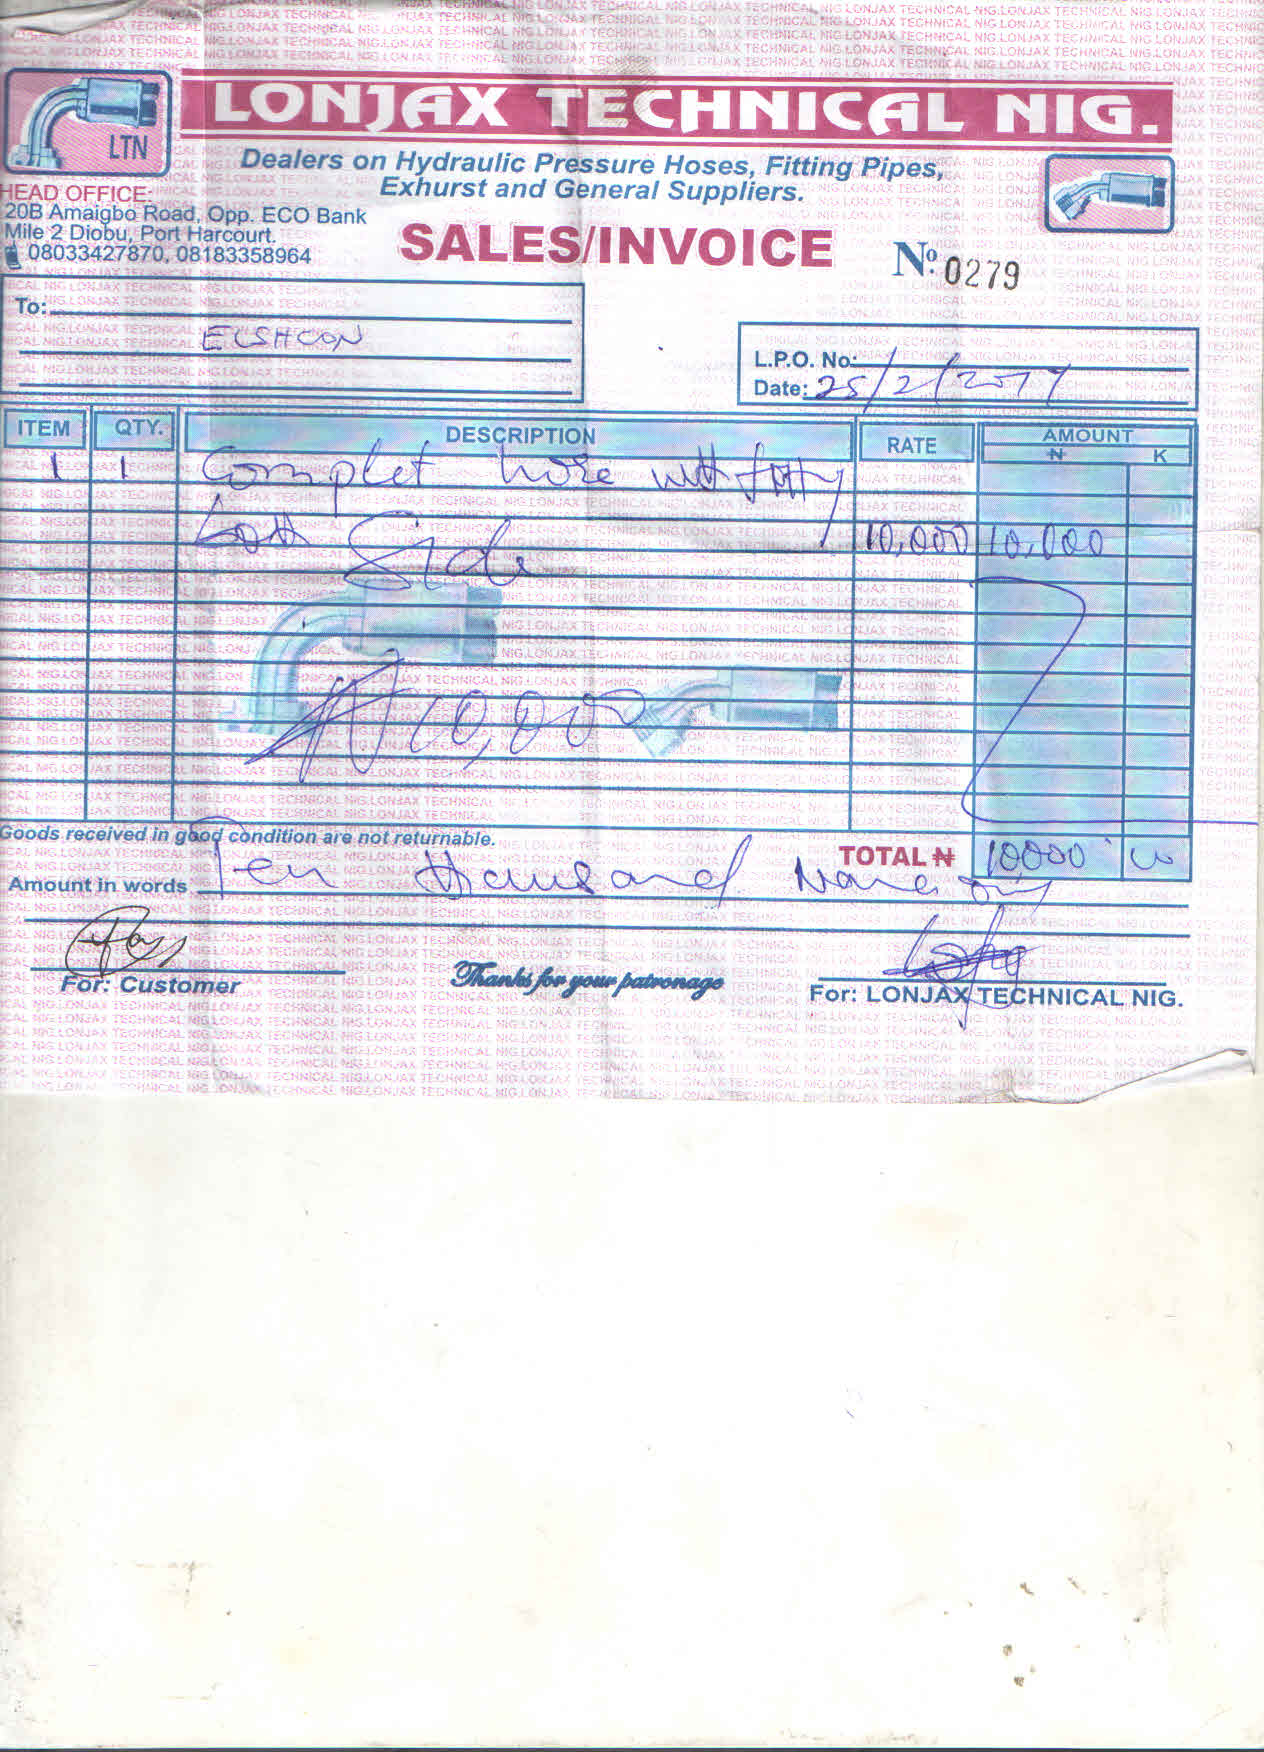 LONJAX TECHNICAL NIG.
LTN
Dealers on Hydraulic Pressure Hoses, Fitting Pipes,
Exhurst and General Suppliers.
HEAD OFFICE:
20B Amaigbo Road, Opp. ECO Bank
Mile 2 Diobu, Port Harcourt.
08033427870, 08183358964
SALES/INVOICE
No. 0279
To:
ELSHCON
L.P.O. No:
Date: 25/2/2017
ITEM QTY. DESCRIPTION RATE AMOUNT
₦ K
1 1 Complet hose with
both Side 10,000 10,000
₦10,000
Goods received in good condition are not returnable.
TOTAL ₦ 10,000 00
Amount in words Ten thousand Naira only
For: Customer
Thanks for your patronage
For: LONJAX TECHNICAL NIG.